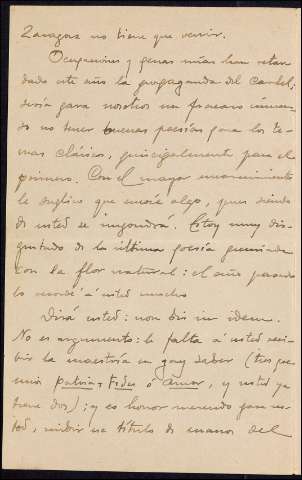 Zaragoza no tiene que venir.
Ocupaciones y penas mías han retar-
dado este año la propaganda del Cartel;
sería para nosotros un fracaso
no tener buenas poesías para los te-
mas clásicos, principalmente para el
primero. Con el mayor
le suplico que envíe algo, pues siendo
de usted se impondrá. Estoy muy dis-
gustado de la última poesía premiada
con la flor natural: el año pasado
lo recordé á usted mucho
Dirá usted: non bis in idem.
No es argumento: le falta á usted reci-
bir la maestría en gay saber (tres pre-
mios Patria, Fides ó Amor, y usted ya
tiene dos); y es honor merecido para us-
ted, recibir un título de manos del